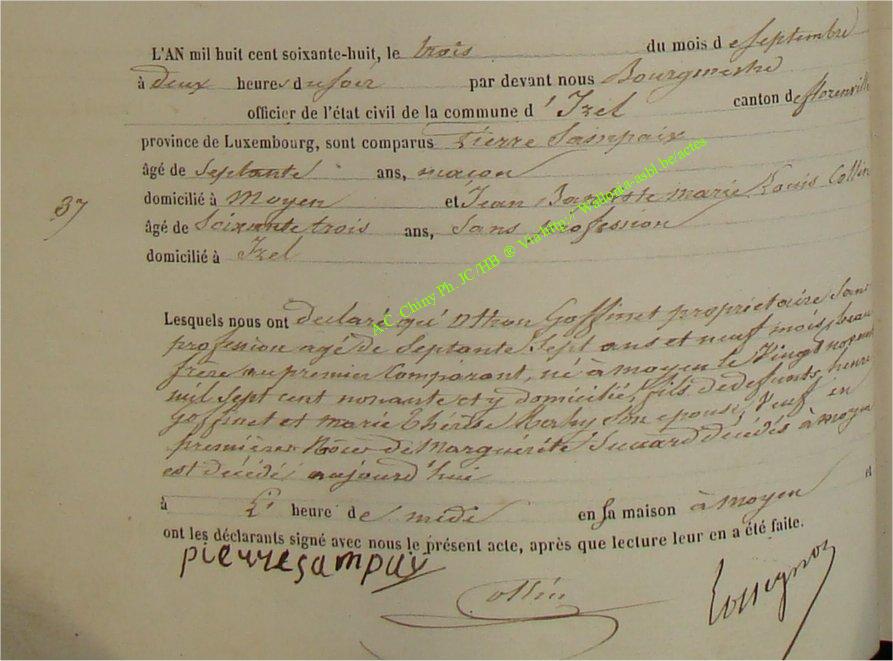 L'AN mil huit cent soixante-huit, le trois du mois d e Septembre
à deux heures du soir par devant nous Bourgmestre
officier de l'état civil de la commune d' Izel canton de florenville
province de Luxembourg, sont comparus Pierre Sainpaix
âgé de Septante ans, maçon
37 domicilié à Moyen et Jean Baptiste marie Louis Collin
âgé de Soixante trois ans, Sans profession
domicilié à Izel
A.C. Chiny Ph. JC/HB @ Via http://Wallonia-asbl.be/actes
Lesquels nous ont declaré qu' Othon Goffinet propriétaire Sans
profession agé de Septante Sept ans et neuf mois, beau
frère au premier Comparant, né à moyen le Vingt novembre
mil Sept cent nonante et y domicilié, fils de defunts, henri
Goffinet et marie thérèse Son epouse, Veuf en
premières Noces de Marguérite Suward décédés à moyen
est décédé aujourd'hui
à 1' heure de midi en sa maison à moyen et
ont les déclarants signé avec nous le présent acte, après que lecture leur en a été faite.
pierre sampaix
Collin
Rossignon